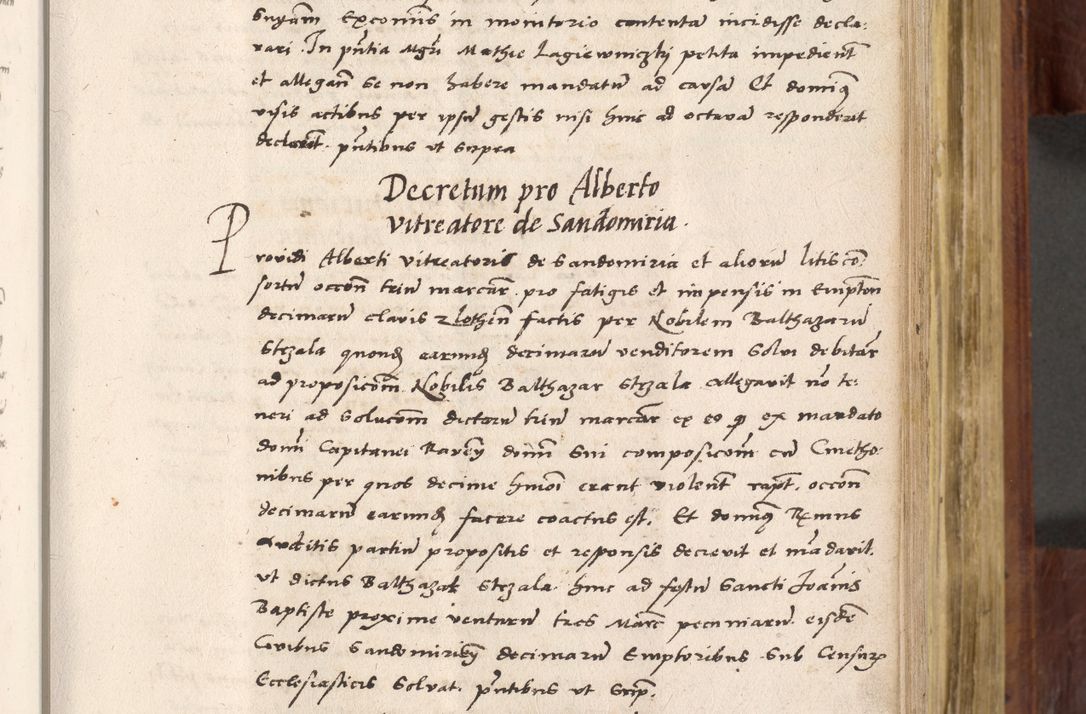 Excomīs in monitorio contenta incidisse decla-
rari. In pn̄tia Mgr̄i Mathie Lagiewniczkj petita impedien̄t
et allegan̄ se non habere mandatū ad causā Et dominꝫ
visis actibus per ipsū gestis nisi hinc ad octavā responderit
pn̄tibus ut supra
Decretum pro Alberto
vitreatore de Sandomiria.
Providi Alberti vitreatoris de Sandomiria et aliorū litiscō-
sortū occōn̄ triū marcar̄ pro fatigis et impensis in Emptōn̄
decimarū factis per Nobilem Balthazarū
Strzala quondꝫ earundꝫ decimarū venditorem solvi debitar̄
ad propositōn̄ Nobilis Balthazar Strzala allegavit nō te-
neri ad solucōn̄ dictarū triū marcar̄ ex eo ꝙ ex mandato
domī Capitanei domī sui composicōn̄ cū Cmetho-
nibus per quos decime hmōi erant violent̄ rapt̄, occōn̄
decimarū earundꝫ facere coactus est. Et dominꝫ
Auditis partiū propositis et responsis decrevit et māndavit
ut dictus Balthazar Strzala hinc ad festū Sancti Joānis
Baptiste proxime venturū tres Marc̄ pecuniarū eisdē
Civibus Sandomirien̄ decimarū Emptoribus sub Censuris
Ecclesiasticis solvat. pn̄tibus ut Sup̄.